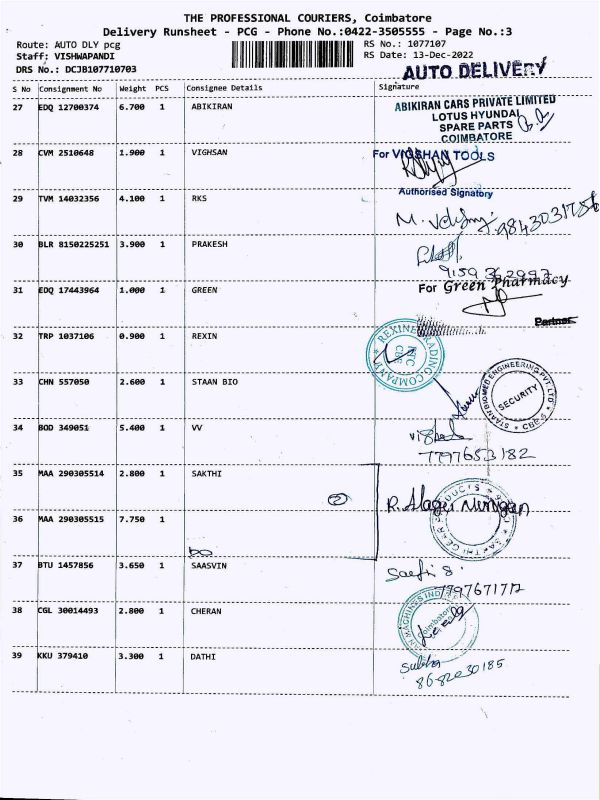 THE PROFESSIONAL COURIERS, Coimbatore
Delivery Runsheet - PCG - Phone No.:0422-3505555 - Page No.:3
Route: AUTO DLY pcg RS No.: 1077107
Staff: VISHWAPANDI RS Date: 13-Dec-2022
DRS No.: DCJB107710703 AUTO DELIVERY
S No Consignment No Weight PCS Consignee Details Signature
27 EDQ 12700374 6.700 1 ABIKIRAN ABIKIRAN CARS PRIVATE LIMITED
LOTUS HYUNDAI
SPARE PARTS
COIMBATORE
28 CVM 2510648 1.900 1 VIGHSAN For VIGSHAN TOOLS
Authorised Signatory
29 TVM 14032356 4.100 1 RKS
30 BLR 8150225251 3.900 1 PRAKESH
31 EDQ 17443964 1.000 1 GREEN For Green Pharmacy
Partner
32 TRP 1037106 0.900 1 REXIN REXINE TRADING COMPANY
33 CHN 557050 2.600 1 STAAN BIO STAAN BIOMED ENGINEERING PVT LTD
SECURITY
34 BOD 349051 5.400 1 VV
7797653182
35 MAA 290305514 2.800 1 SAKTHI
2 R. Alagu Murugan
SAKTHI GEAR PRODUCTS
36 MAA 290305515 7.750 1
37 BTU 1457856 3.650 1 SAASVIN
38 CGL 30014493 2.800 1 CHERAN
Coimbatore
39 KKU 379410 3.300 1 DATHI
8682030185